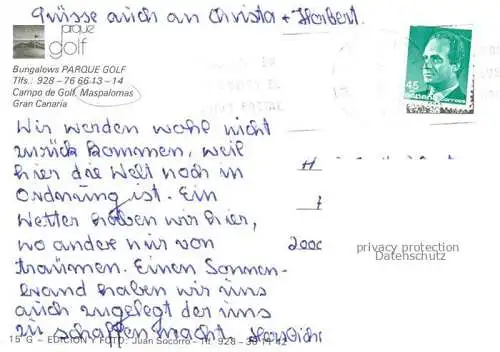 Grüsse auch an Christa + Herbert.
parque
golf
Bungalows PARQUE GOLF
Tlfs.: 928 - 76 66 13 - 14
Campo de Golf, Maspalomas
Gran Canaria
45
Wir werden wohl nicht
zurück kommen, weil
hier die Welt noch in
Ordnung ist. Ein
Wetter haben wir hier,
wo andere nur von
träumen. Einen Sonnen-
brand haben wir uns
auch zugelegt der uns
zu schaffen macht. Herzliche
2000
privacy protection
Datenschutz
15 G - EDICION Y FOTO: Juan Socorro - Tf. 928 -